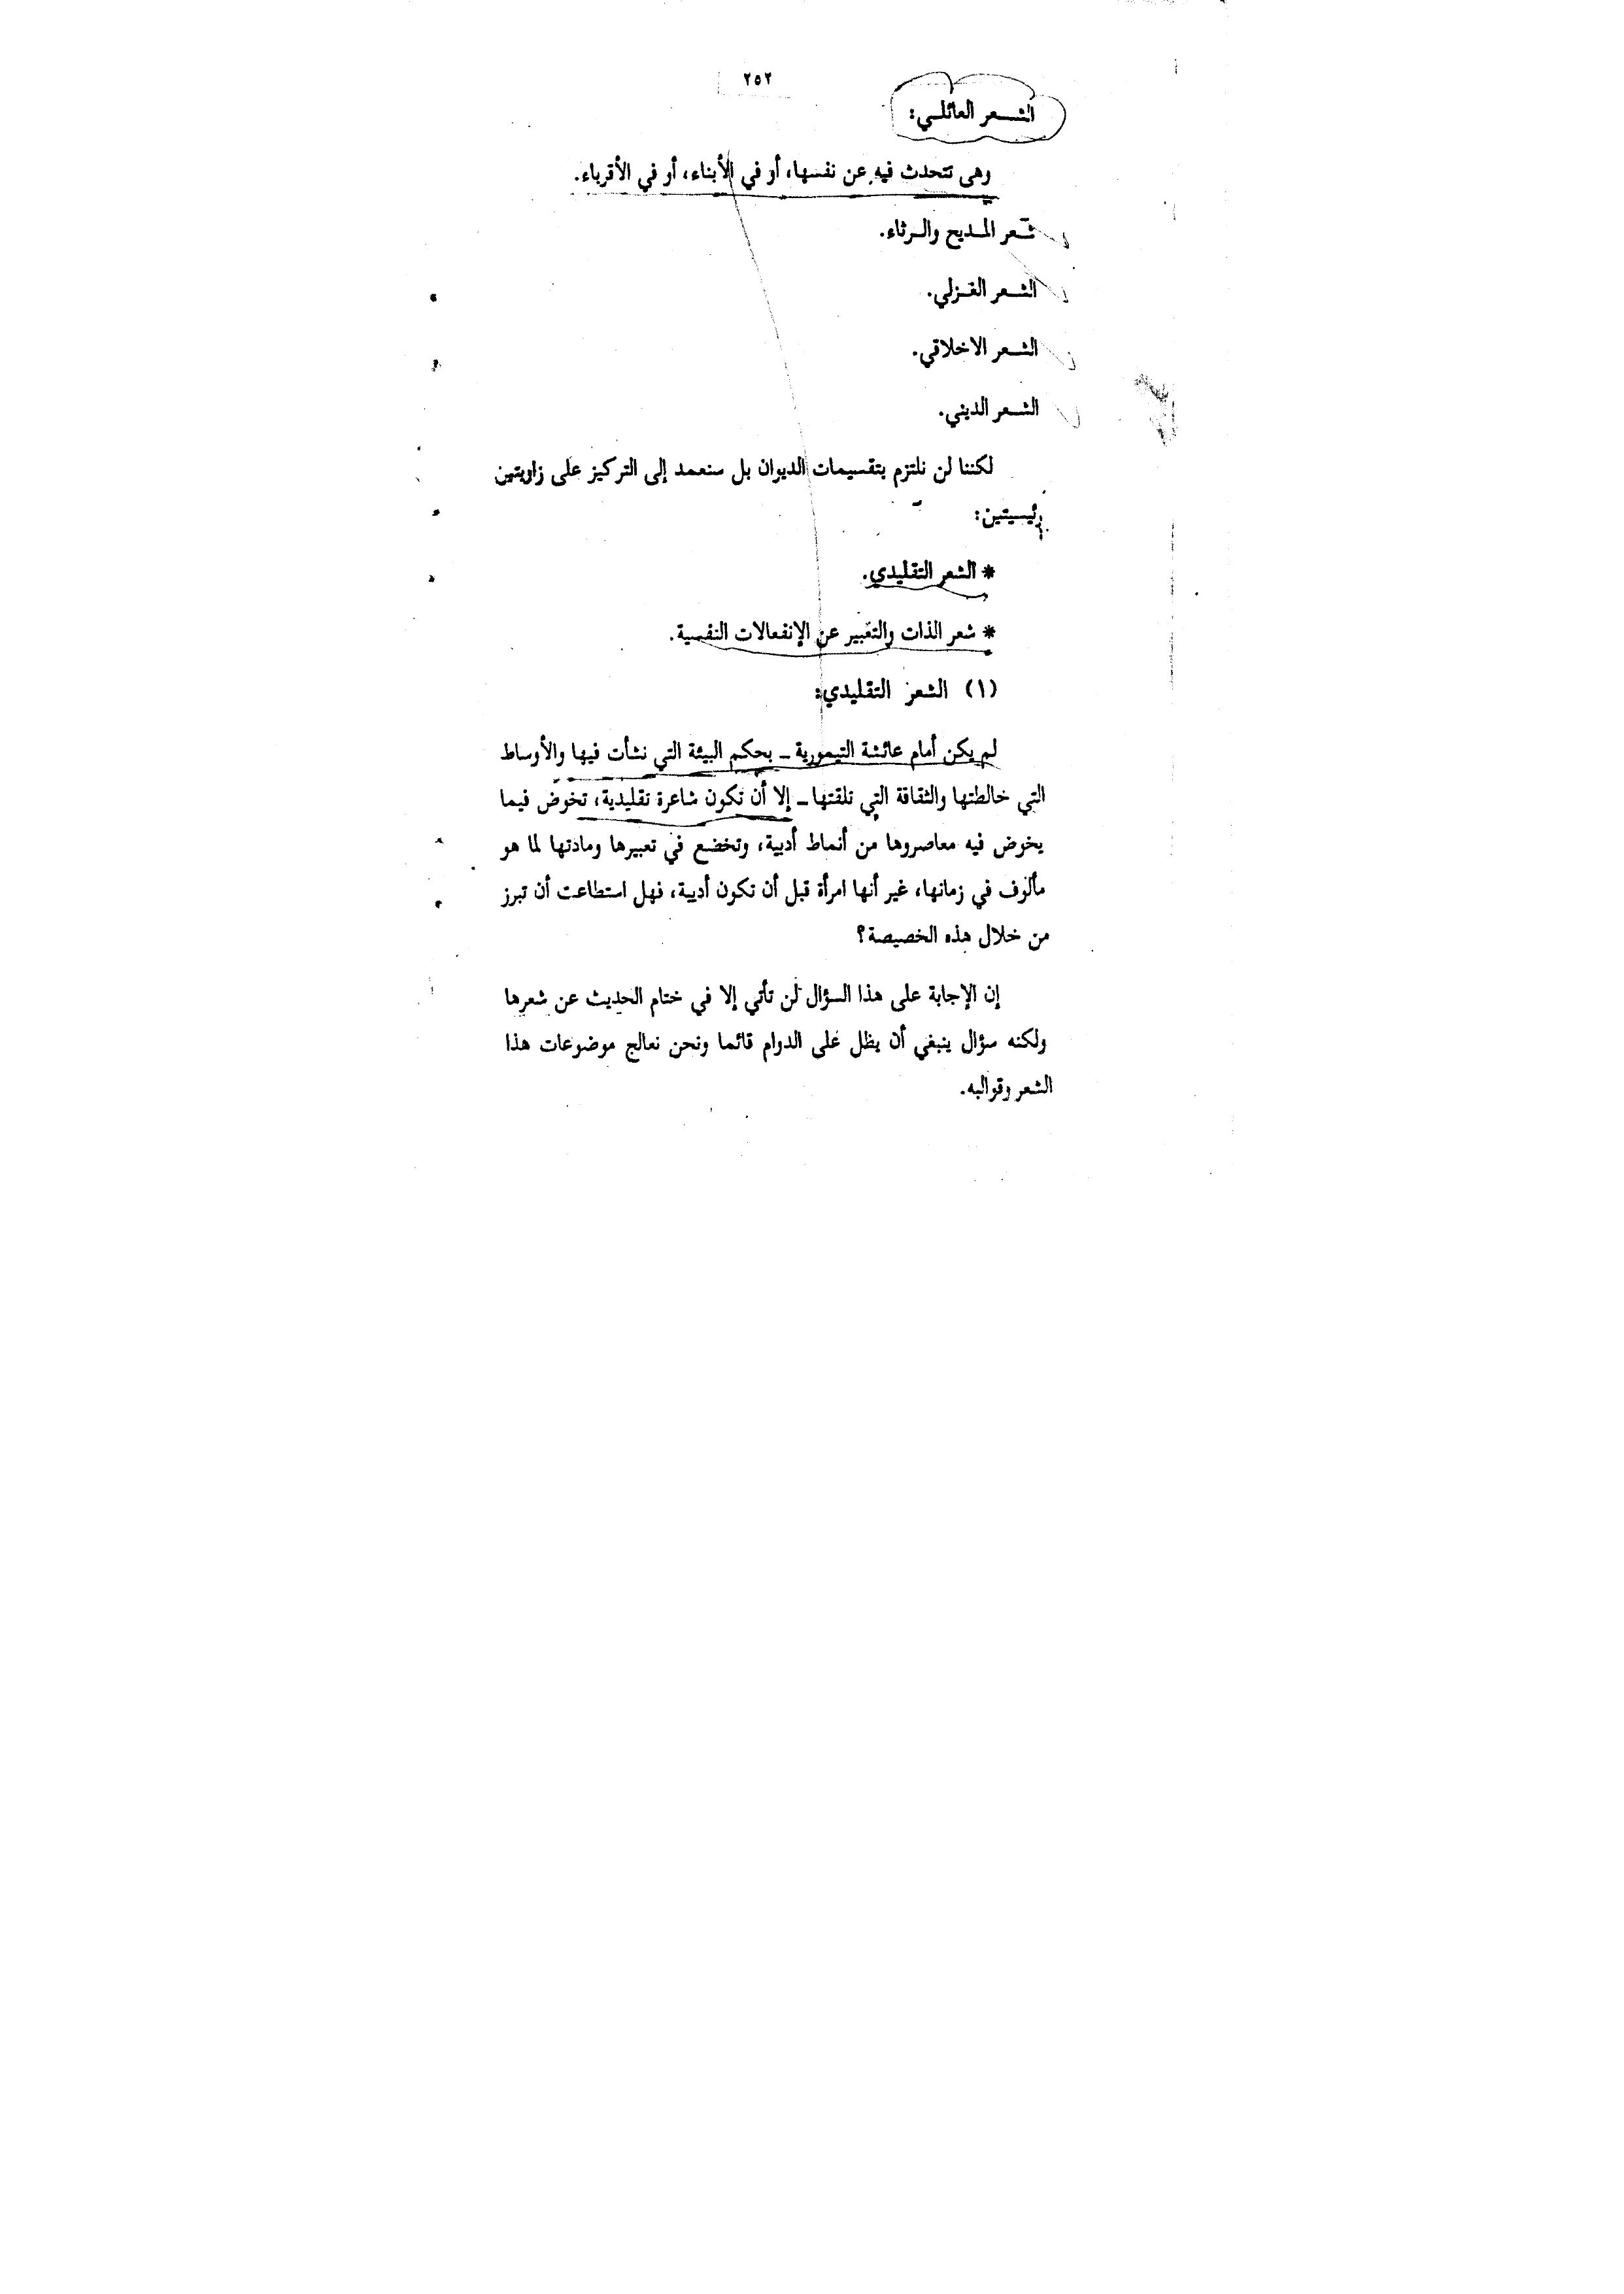 ٢٥٢
الشعر العائلي:
وهى تتحدث فيه عن نفسها، أو في الأبناء، أو في الأقرباء.
شعر المديح والرثاء.
الشعر الغزلي.
الشعر الاخلاقي.
الشعر الديني.
لكننا لن نلتزم بتقسيمات الديوان بل سنعمد إلى التركيز على زاويتين
رئيسيتين:
* الشعر التقليدي.
* شعر الذات والتعبير عن الإنفعالات النفسية.
(١) الشعر التقليدي:
لم يكن أمام عائشة التيمورية ـ بحكم البيئة التي نشأت فيها والأوساط
التي خالطتها والثقافة التي تلقتها ـ إلا أن تكون شاعرة تقليدية، تخوض فيما
يخوض فيه معاصروها من أنماط أدبية، وتخضع في تعبيرها ومادتها لما هو
مألوف في زمانها، غير أنها امرأة قبل أن تكون أديبة، فهل استطاعت أن تبرز
من خلال هذه الخصيصة؟
إن الإجابة على هذا السؤال لن تأتي إلا في ختام الحديث عن شعرها
ولكنه سؤال ينبغي أن يظل على الدوام قائما ونحن نعالج موضوعات هذا
الشعر وقوالبه.